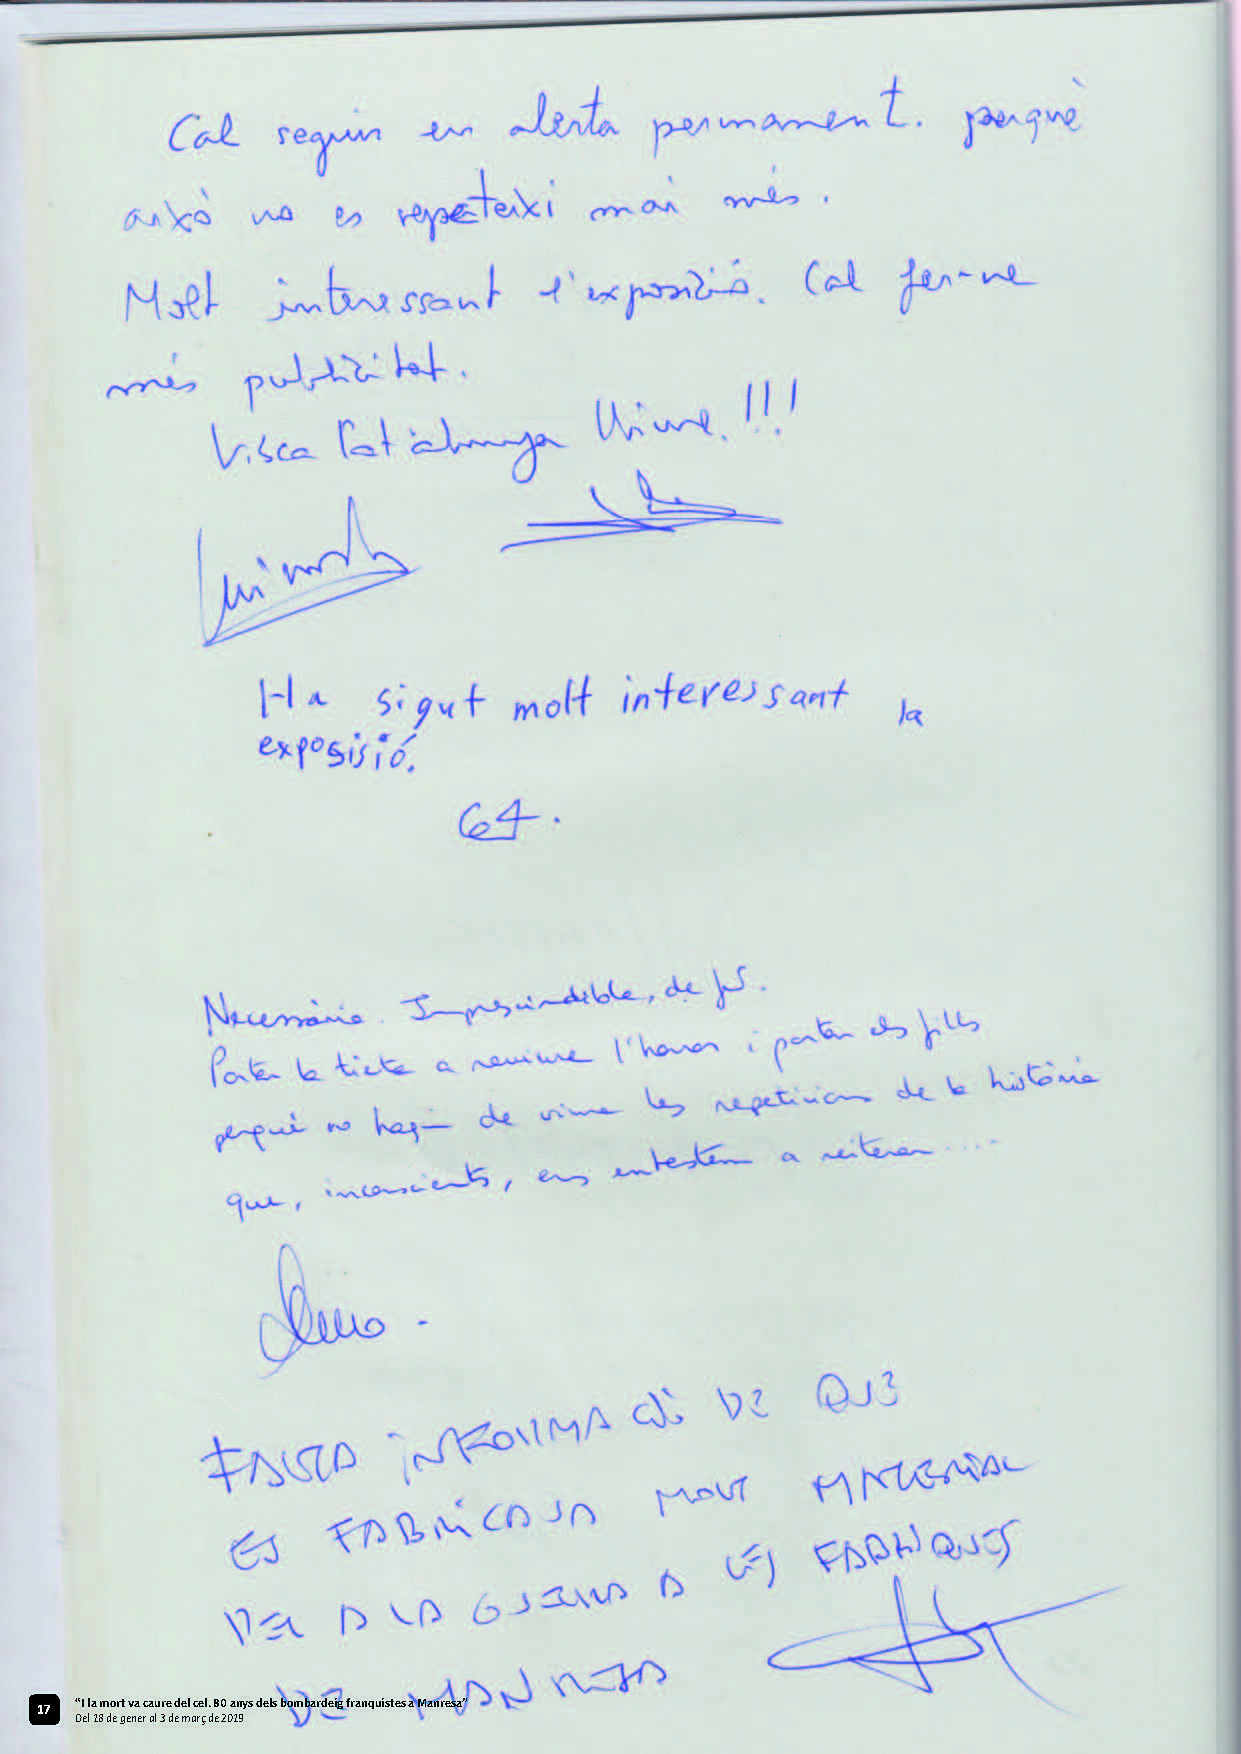 Cal seguir en alerta permanent. perquè
això no es repeteixi mai més.
Molt interessant l'exposició. Cal fer-ne
més publicitat.
Visca Catalunya lliure.!!!
Ha sigut molt interessant la
exposisió.
64.
Necessària. Imprescindible, de fet.
Portar la tieta a reviure l'horror i portar els fills
perquè no hagin de viure les repeticions de la història
que, inconscients, ens entestem a reiterar....
FALTA INFORMACIÓ DE QUE
ES FABRICAVA MOLT MATERIAL
PER A LA GUERRA A LES FABRIQUES
DE MANRESA
17
"I la mort va caure del cel. 80 anys dels bombardeig franquistes a Manresa"
Del 18 de gener al 3 de març de 2019